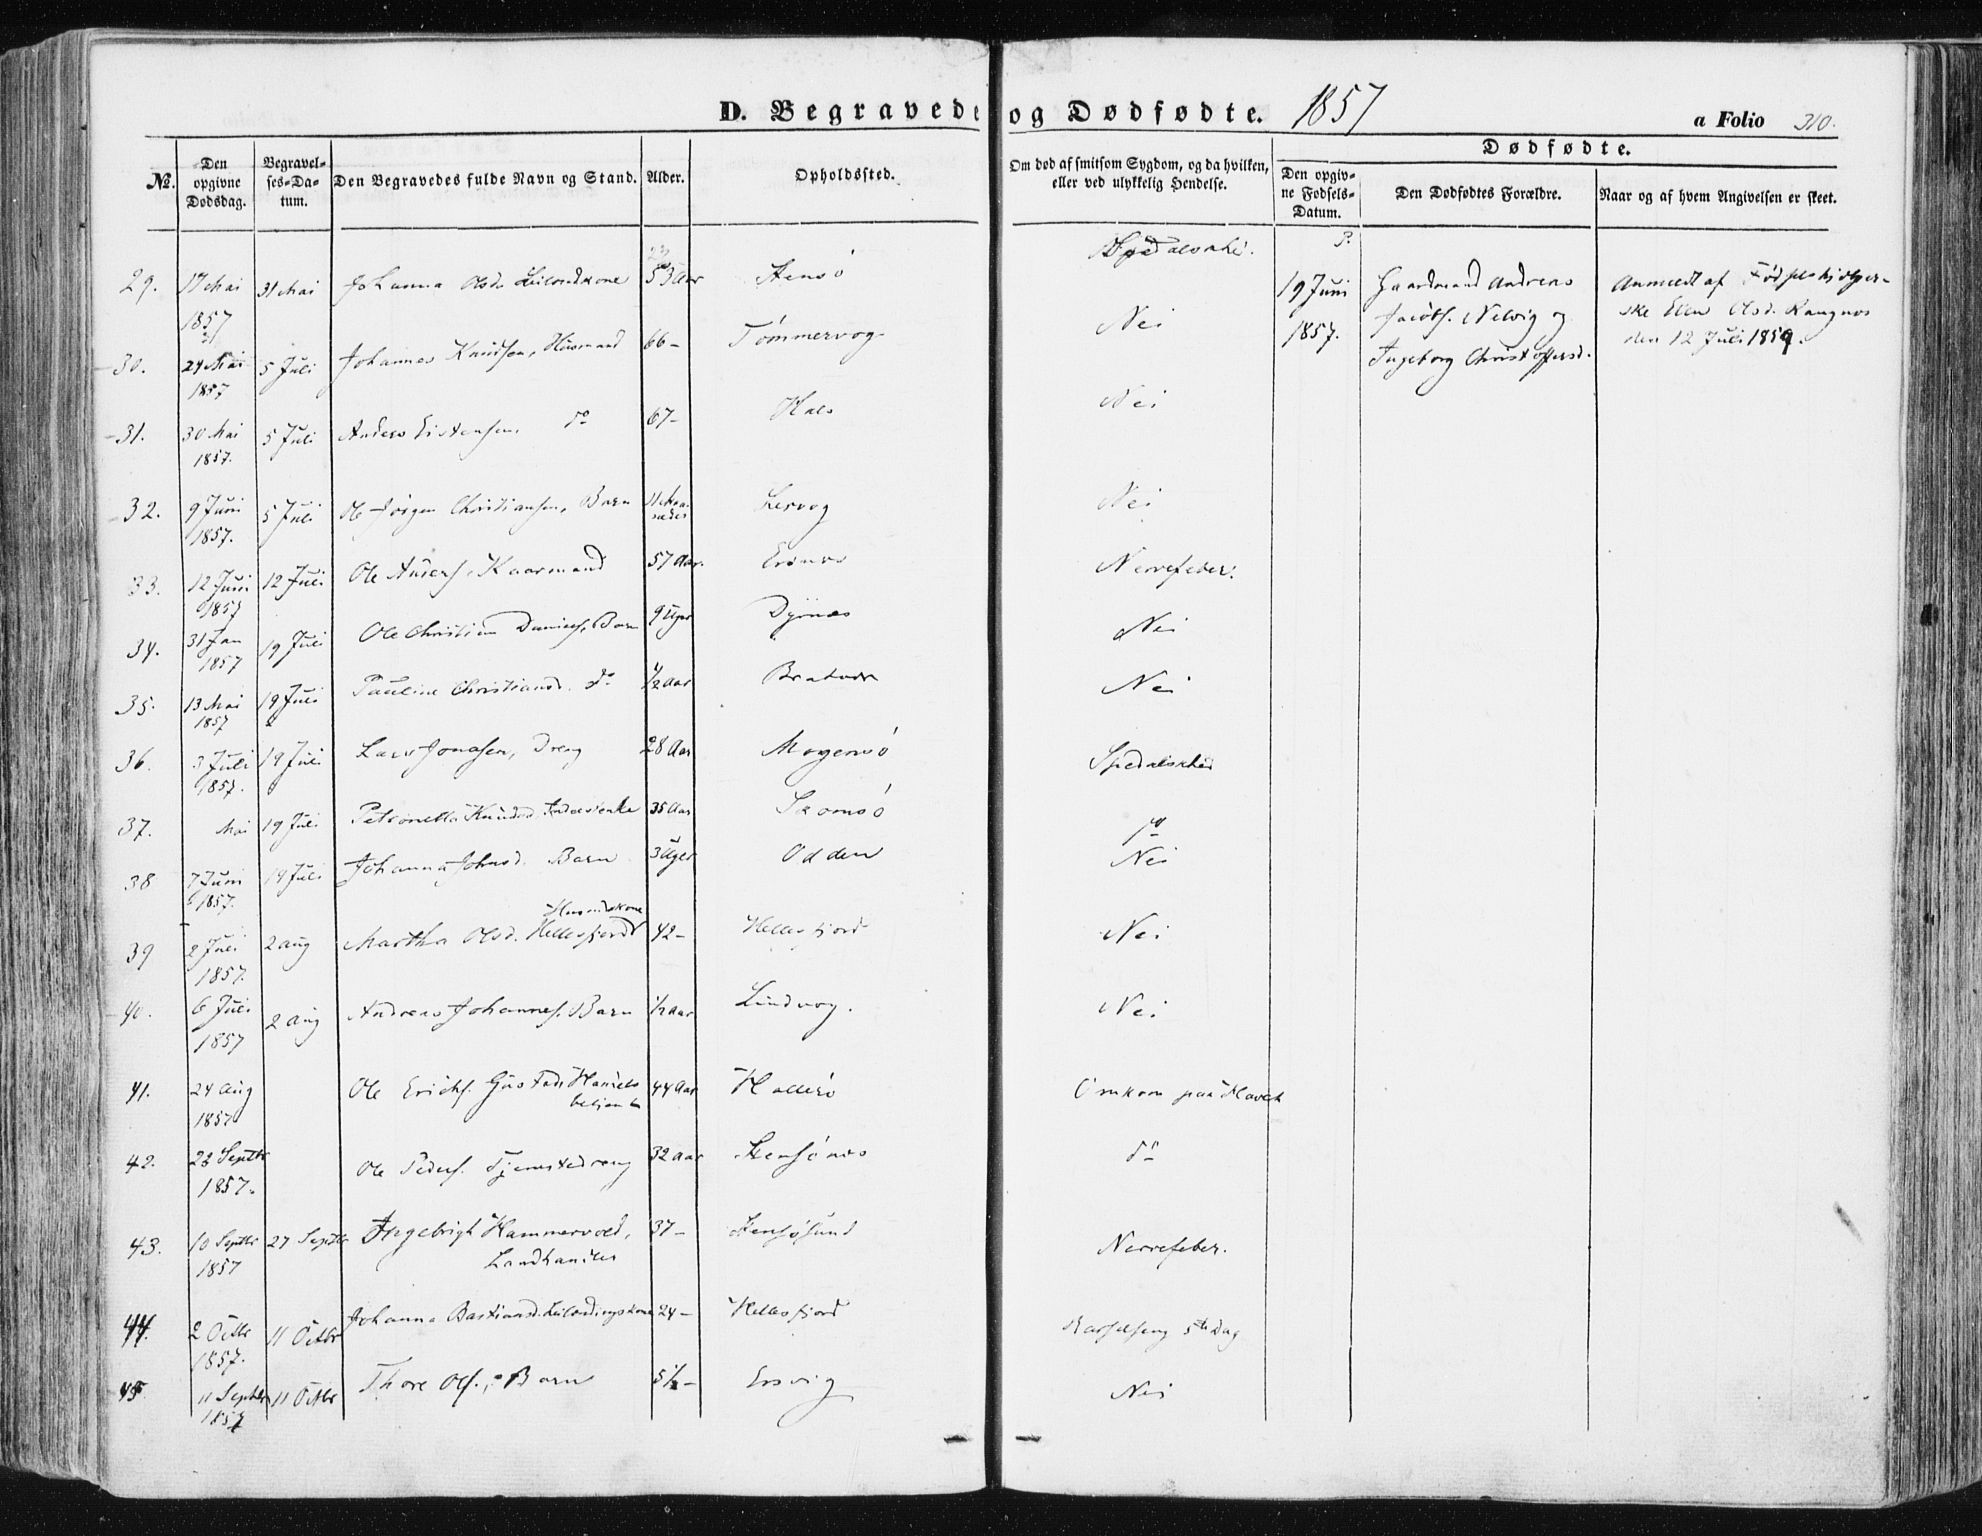 D. Begravede og Dødfødte. 1857
a Folio 310.
Dødfødte.
№. Den opgivne Dødsdag. Begravelses-Datum. Den Begravedes fulde Navn og Stand. Alder. Opholdssted. Om død af smitsom Sygdom, og da hvilken, eller ved ulykkelig Hendelse. Den opgivne Fødsels-Datum. Den Dødfødtes Forældre. Naar og af hvem Angivelsen er skeet.
29. 17 Mai 1857 31 Mai Johanna Olsd. Leilendkone 53 Aar Spedalskhd.
19 Juni 1857. Gaardmand Andreas Jacobs. Nelvig og Ingeborg Christoffersd. Anmeldt af Fødselshjelperske Ellen Olsd. den 12 Juli
30. 24 Mai 1857 5 Juli Johannes Knudsen, Husmand 66 - Tømmervog Nei
31. 30 Mai 1857. 5 Juli Anders Eistensen do 67 - Hals Nei
32. 9 Juni 1857. 5 Juli Ole Jörgen Christiansen, Barn 11 Maaneder Lervog Nei
33. 12 Juni 1857 12 Juli Ole Anders. Kaarmand 57 Aar. Nervefeber.
34. 31 Jan 1857 19 Juli Ole Christian Daniels. Barn 9 Uger Dyrnæs Nei
35. 13 Mai 1857 19 Juli Pauline Christiansd. do 1/2 Aar Bratvær Nei
36. 3 Juli 1857. 19 Juli Lars Jonasen, Dreng 28 Aar Mogensö Spedalskhed
37. Mai 19 Juli Petronella Knudsd. 35 Aar Skomsö do
38 7 Juni 1857. 19 Juli Johanna Johnsd. Barn 3 Uger Odden Nei
39 2 Juli 1857. 2 Aug Martha Olsd. Husmdskone Hellesfjord 42 - Hellesfjord Nei
40. 6 Juli 1857 2 Aug Andreas Johannes. Barn 1/2 Aar Lindvog. Nei
41. 24 Aug 1857 Ole Erichs. Gustads Handelsbetjent 44 Aar Hallesö Omkom paa Havet
42. 23 Septbr 1857. Ole Peders. Tjenstedreng 32 Aar do
43. 10 Septbr 1857 27 Septbr Ingebrigt Hammervold, Landhandler 37 - Nervefeber.
44. 2 Octbr 1857. 11 Octbr Johanna Bastiansd. Leilendingskone 24 - Hellesfjord Barselseng 5te Dag
45 11 Septbr 1857 11 Octbr Thore Ols., Barn 5 1/2 - Ersvig Nei